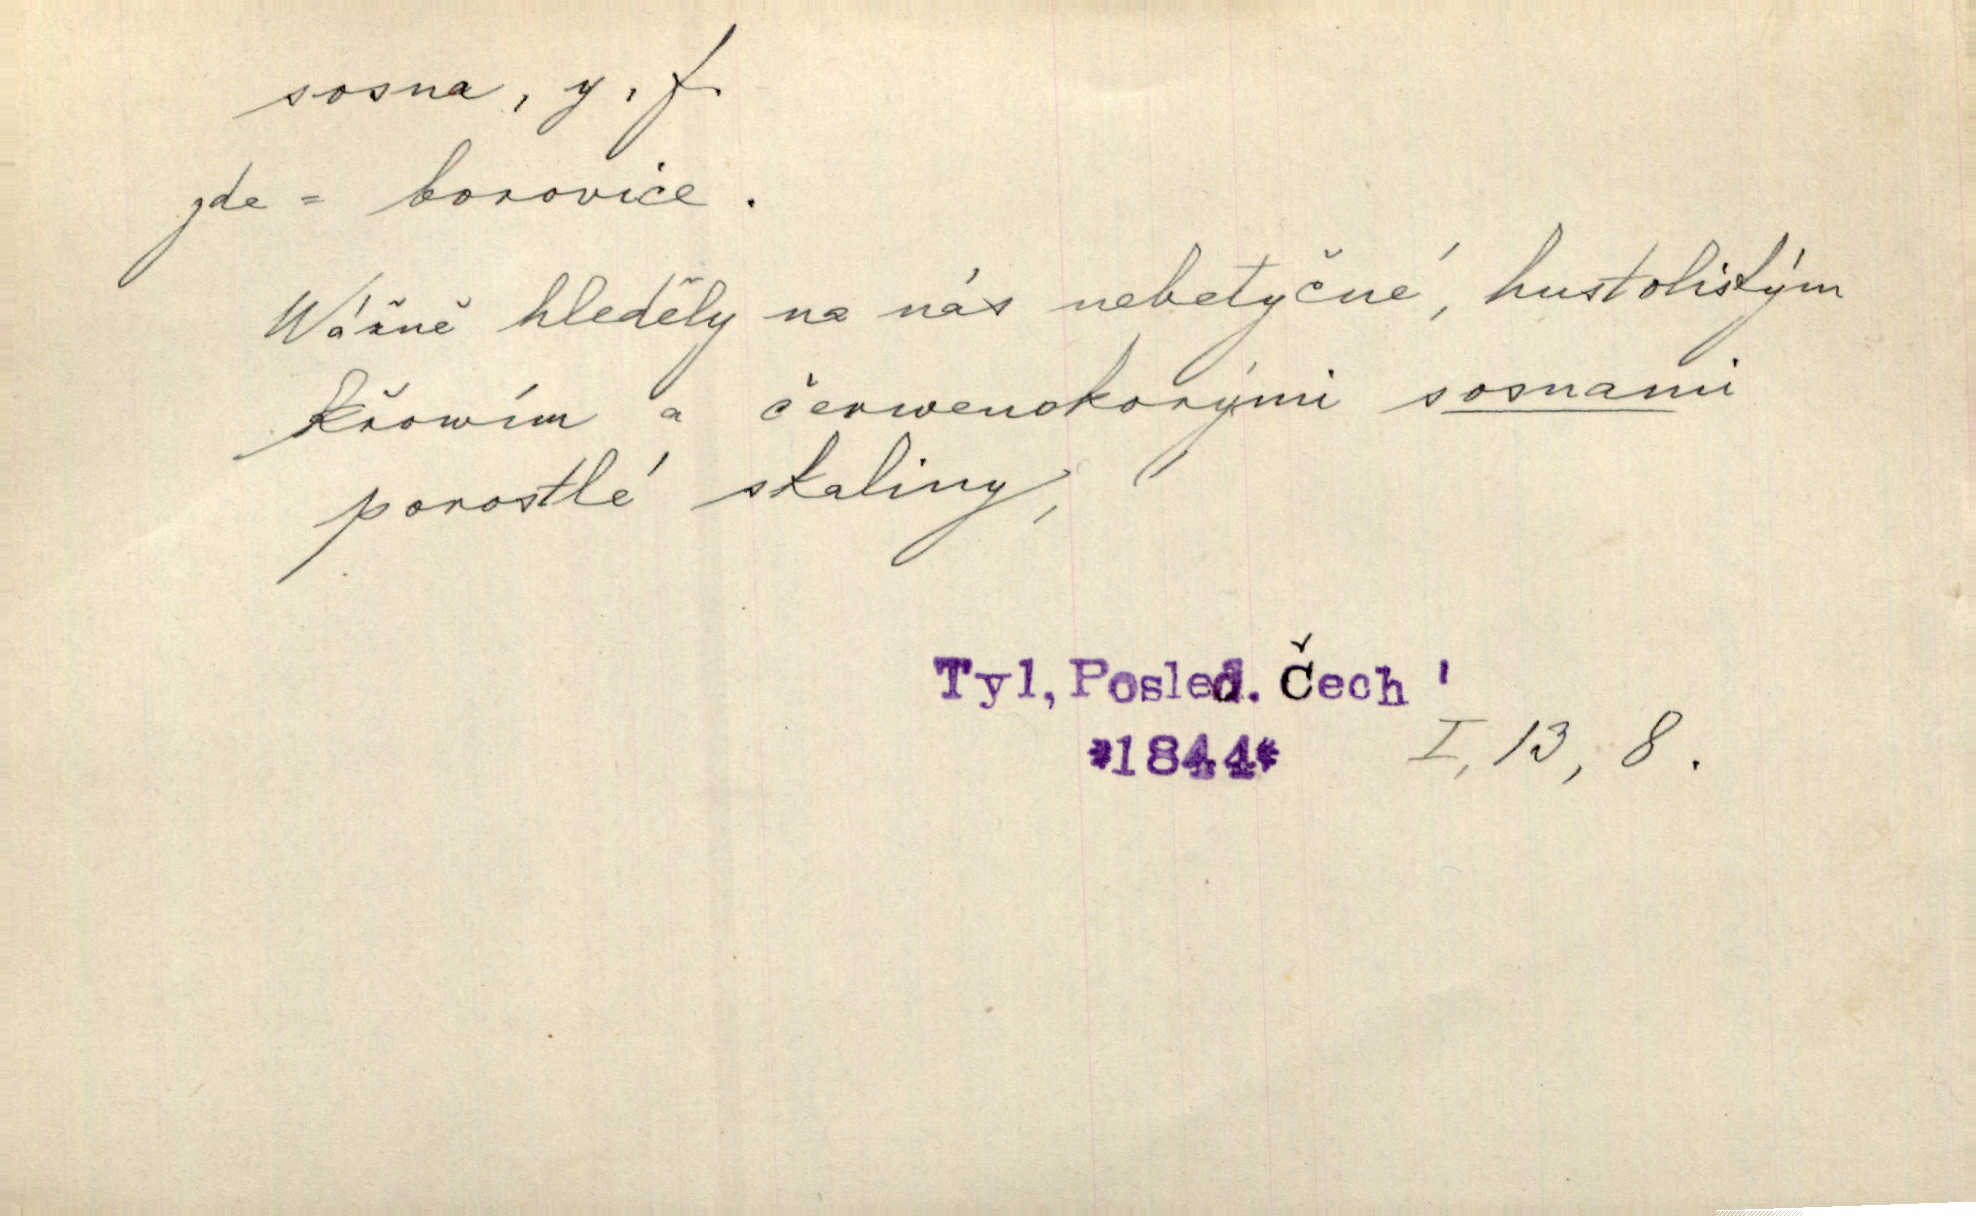 sosna, y, f.
zde = borovice.
Wážně hleděly na nás nebetyčné, hustolistým
křowím a čerwenokorými sosnami
porostlé skaliny,
Tyl, Posled. Čech '
*1844* I, 13, 8.